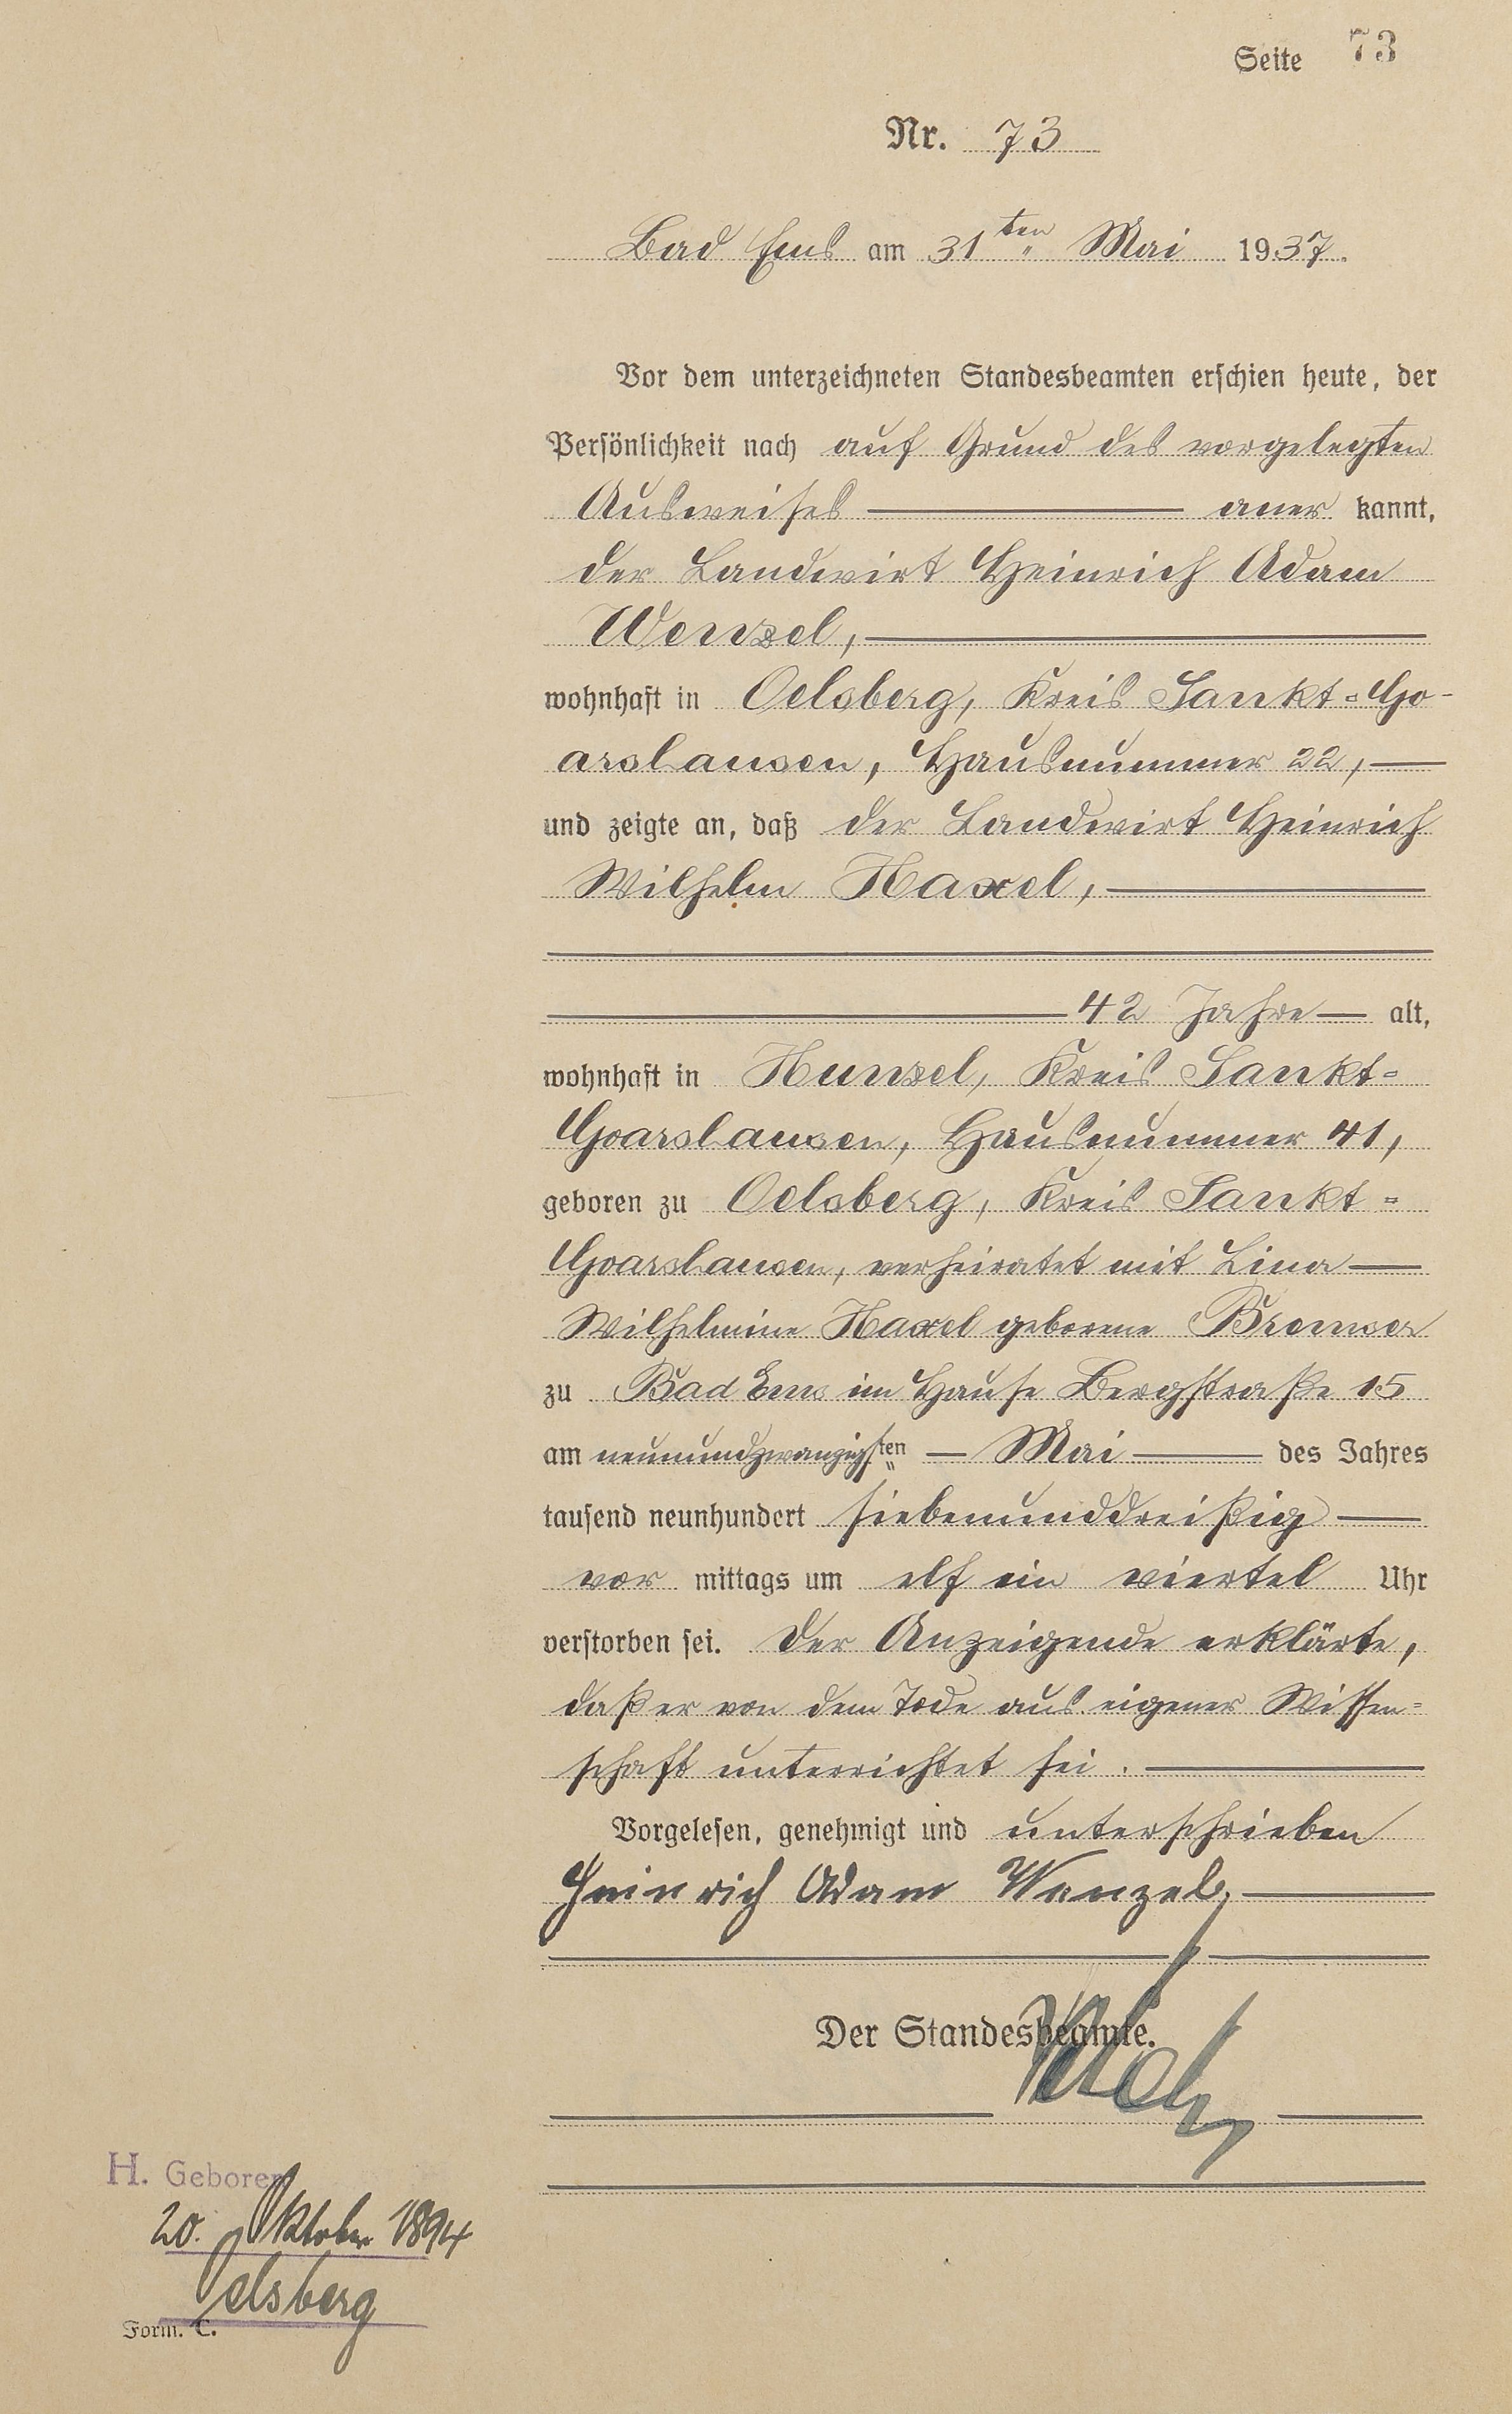 Seite 73
Nr. 73
Bad Ems am 31ten Mai 1937.
Vor dem unterzeichneten Standesbeamten erschien heute, der
Persönlichkeit nach auf Grund des vorgelegten
Ausweises aner kannt,
der Landwirt Heinrich Adam
Wenzel,
wohnhaft in Oelsberg, Kreis Sankt=Go-
arshausen, Hausnummer 22,
und zeigte an, daß der Landwirt Heinrich
Wilhelm Haxel,
42 Jahre alt,
wohnhaft in Hunzel, Kreis Sankt=
Goarshausen, Hausnummer 41,
geboren zu Oelsberg, Kreis Sankt=
Goarshausen, verheiratet mit Lina
Wilhelmine Haxel geborene Bremser
zu Bad Ems im Hause Bergstraße 15
am neunundzwanzigsten Mai des Jahres
tausend neunhundert siebenunddreißig
vor mittags um elf ein viertel Uhr
verstorben sei. Der Anzeigende erklärte,
daß er von dem Tode aus eigener Wissen=
schaft unterrichtet sei.
Vorgelesen, genehmigt und unterschrieben
Heinrich Adam Wenzel.
Der Standesbeamte.
H. Geboren
20. Oktober 1894
Oelsberg
Form. C.